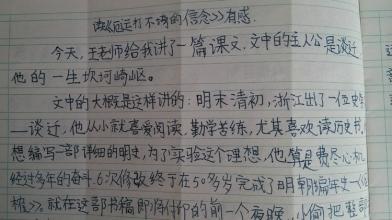 读《厄运打不垮的信念》有感.
今天,王老师给我讲了一篇课文,文中的主人公是谈迁
他的一生坎坷崎岖。
文中的大概是这样讲的:明末清初,浙江出了一位史学
—谈迁,他从小就喜爱阅读,勤学苦练,尤其喜欢读历史书,
想编写一部详细的明史,为了实验这个理想,他算是费尽心机
经过多年的奋斗.6次修改终于在50多岁完成了明朝编年史—《
榷》就在这部书稿即将付印的前一个夜晚,小偷把整部